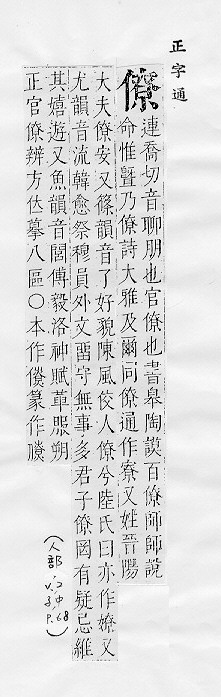 正字通
僚 連喬切音聊朋也官僚也書皋陶謨百僚師師說
命惟曁乃僚詩大雅及爾同僚通作寮又姓晉陽
大夫僚安又篠韻音了好貌陳風佼人僚兮陸氏曰亦作嫽又
尤韻音流韓愈祭穆員外文畱守無事多君子僚罔有疑忌維
其嬉遊又魚韻音閭傅毅洛神賦革服朔
正官僚辨方位摹八區〇本作僚篆作
(人部
P.68)